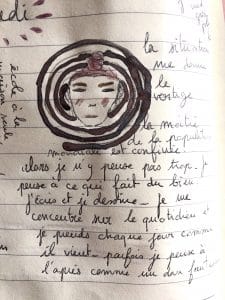 di
école à la
maison seule
la situation
me donne
le
vertige
la moitié
de la population
mondiale est confinée.
alors je n'y pense pas trop. je
pense à ce qui fait du bien.
j'écris et je dessine. je me
concentre sur le quotidien et
je prends chaque jour comme
il vient. parfois je pense à
l'après comme un don